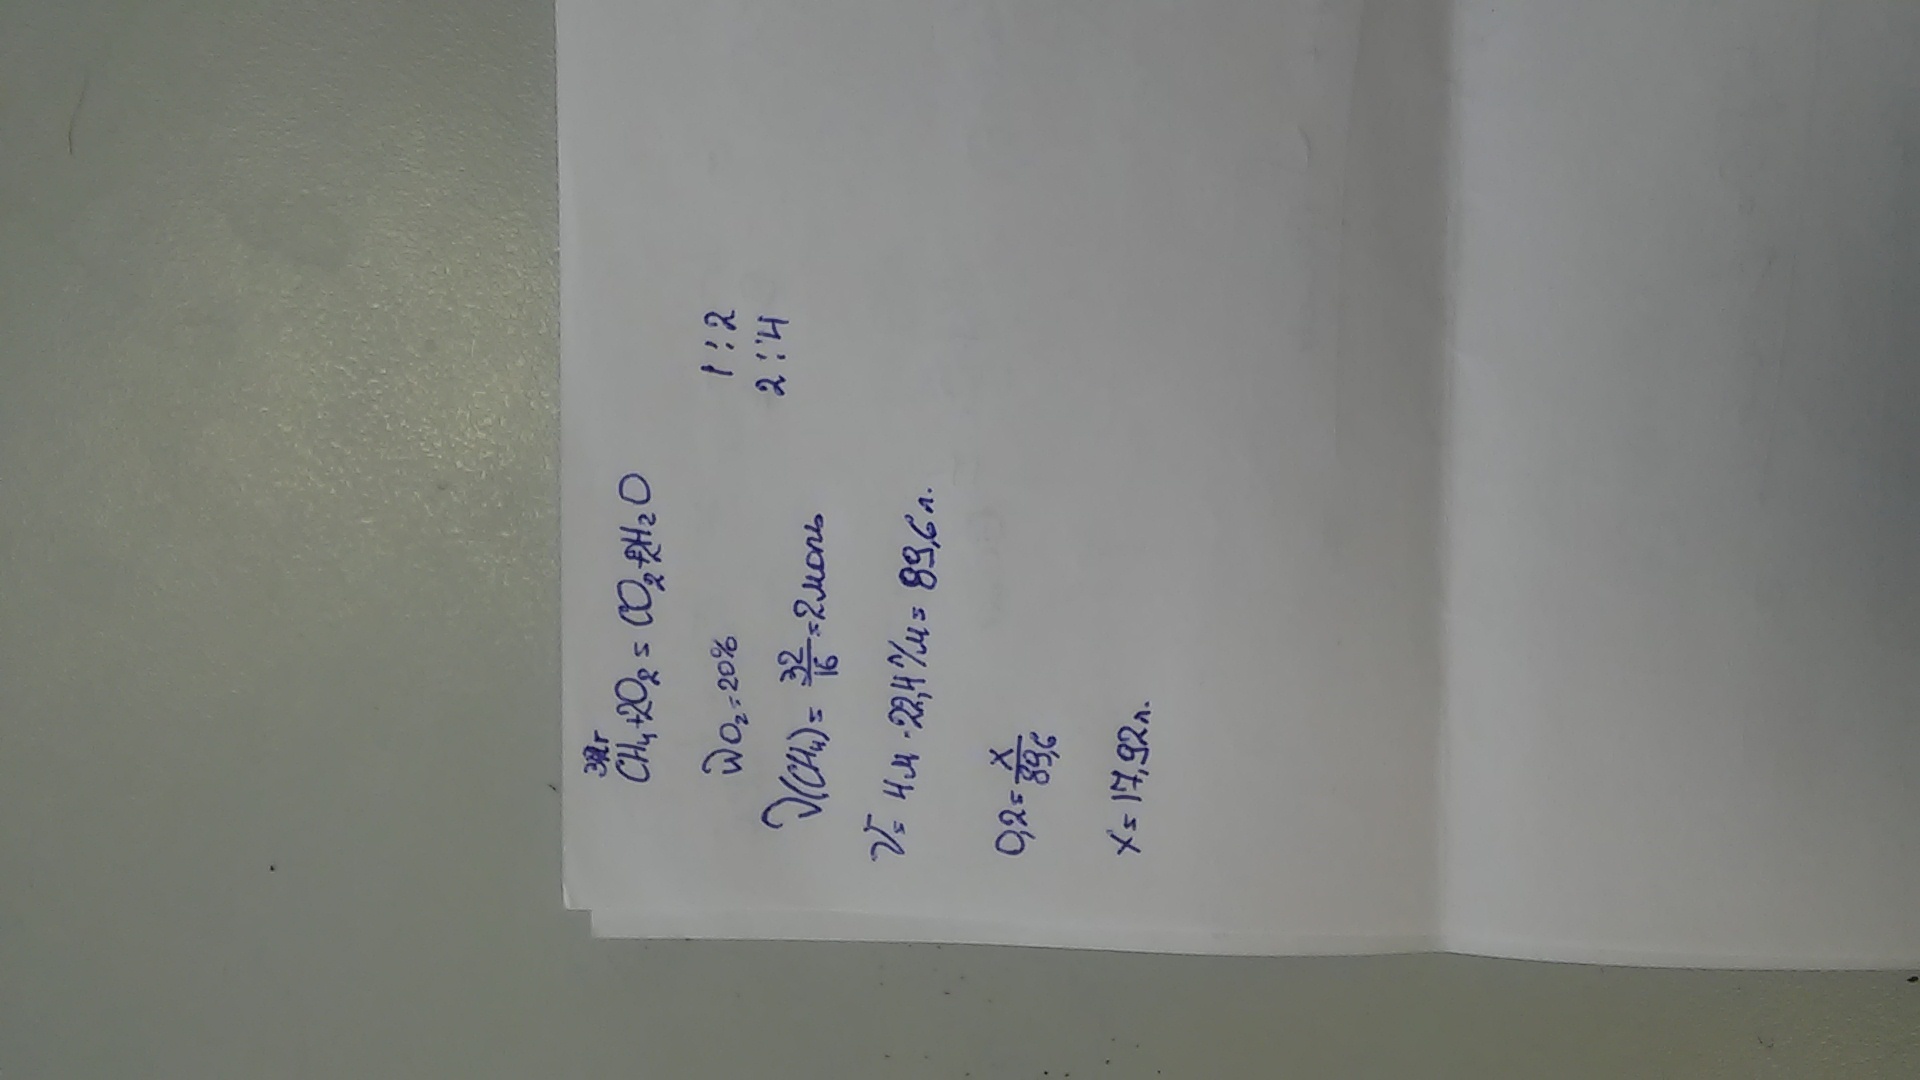 32г
CH₄+2O₂ = CO₂+2H₂O
WO₂ = 20% 1 : 2
2 : 4
ν(CH₄) = 32/16 = 2моль
V = 4м · 22,4 л/м = 89,6 л.
0,2 = x/89,6
x = 17,92 л.